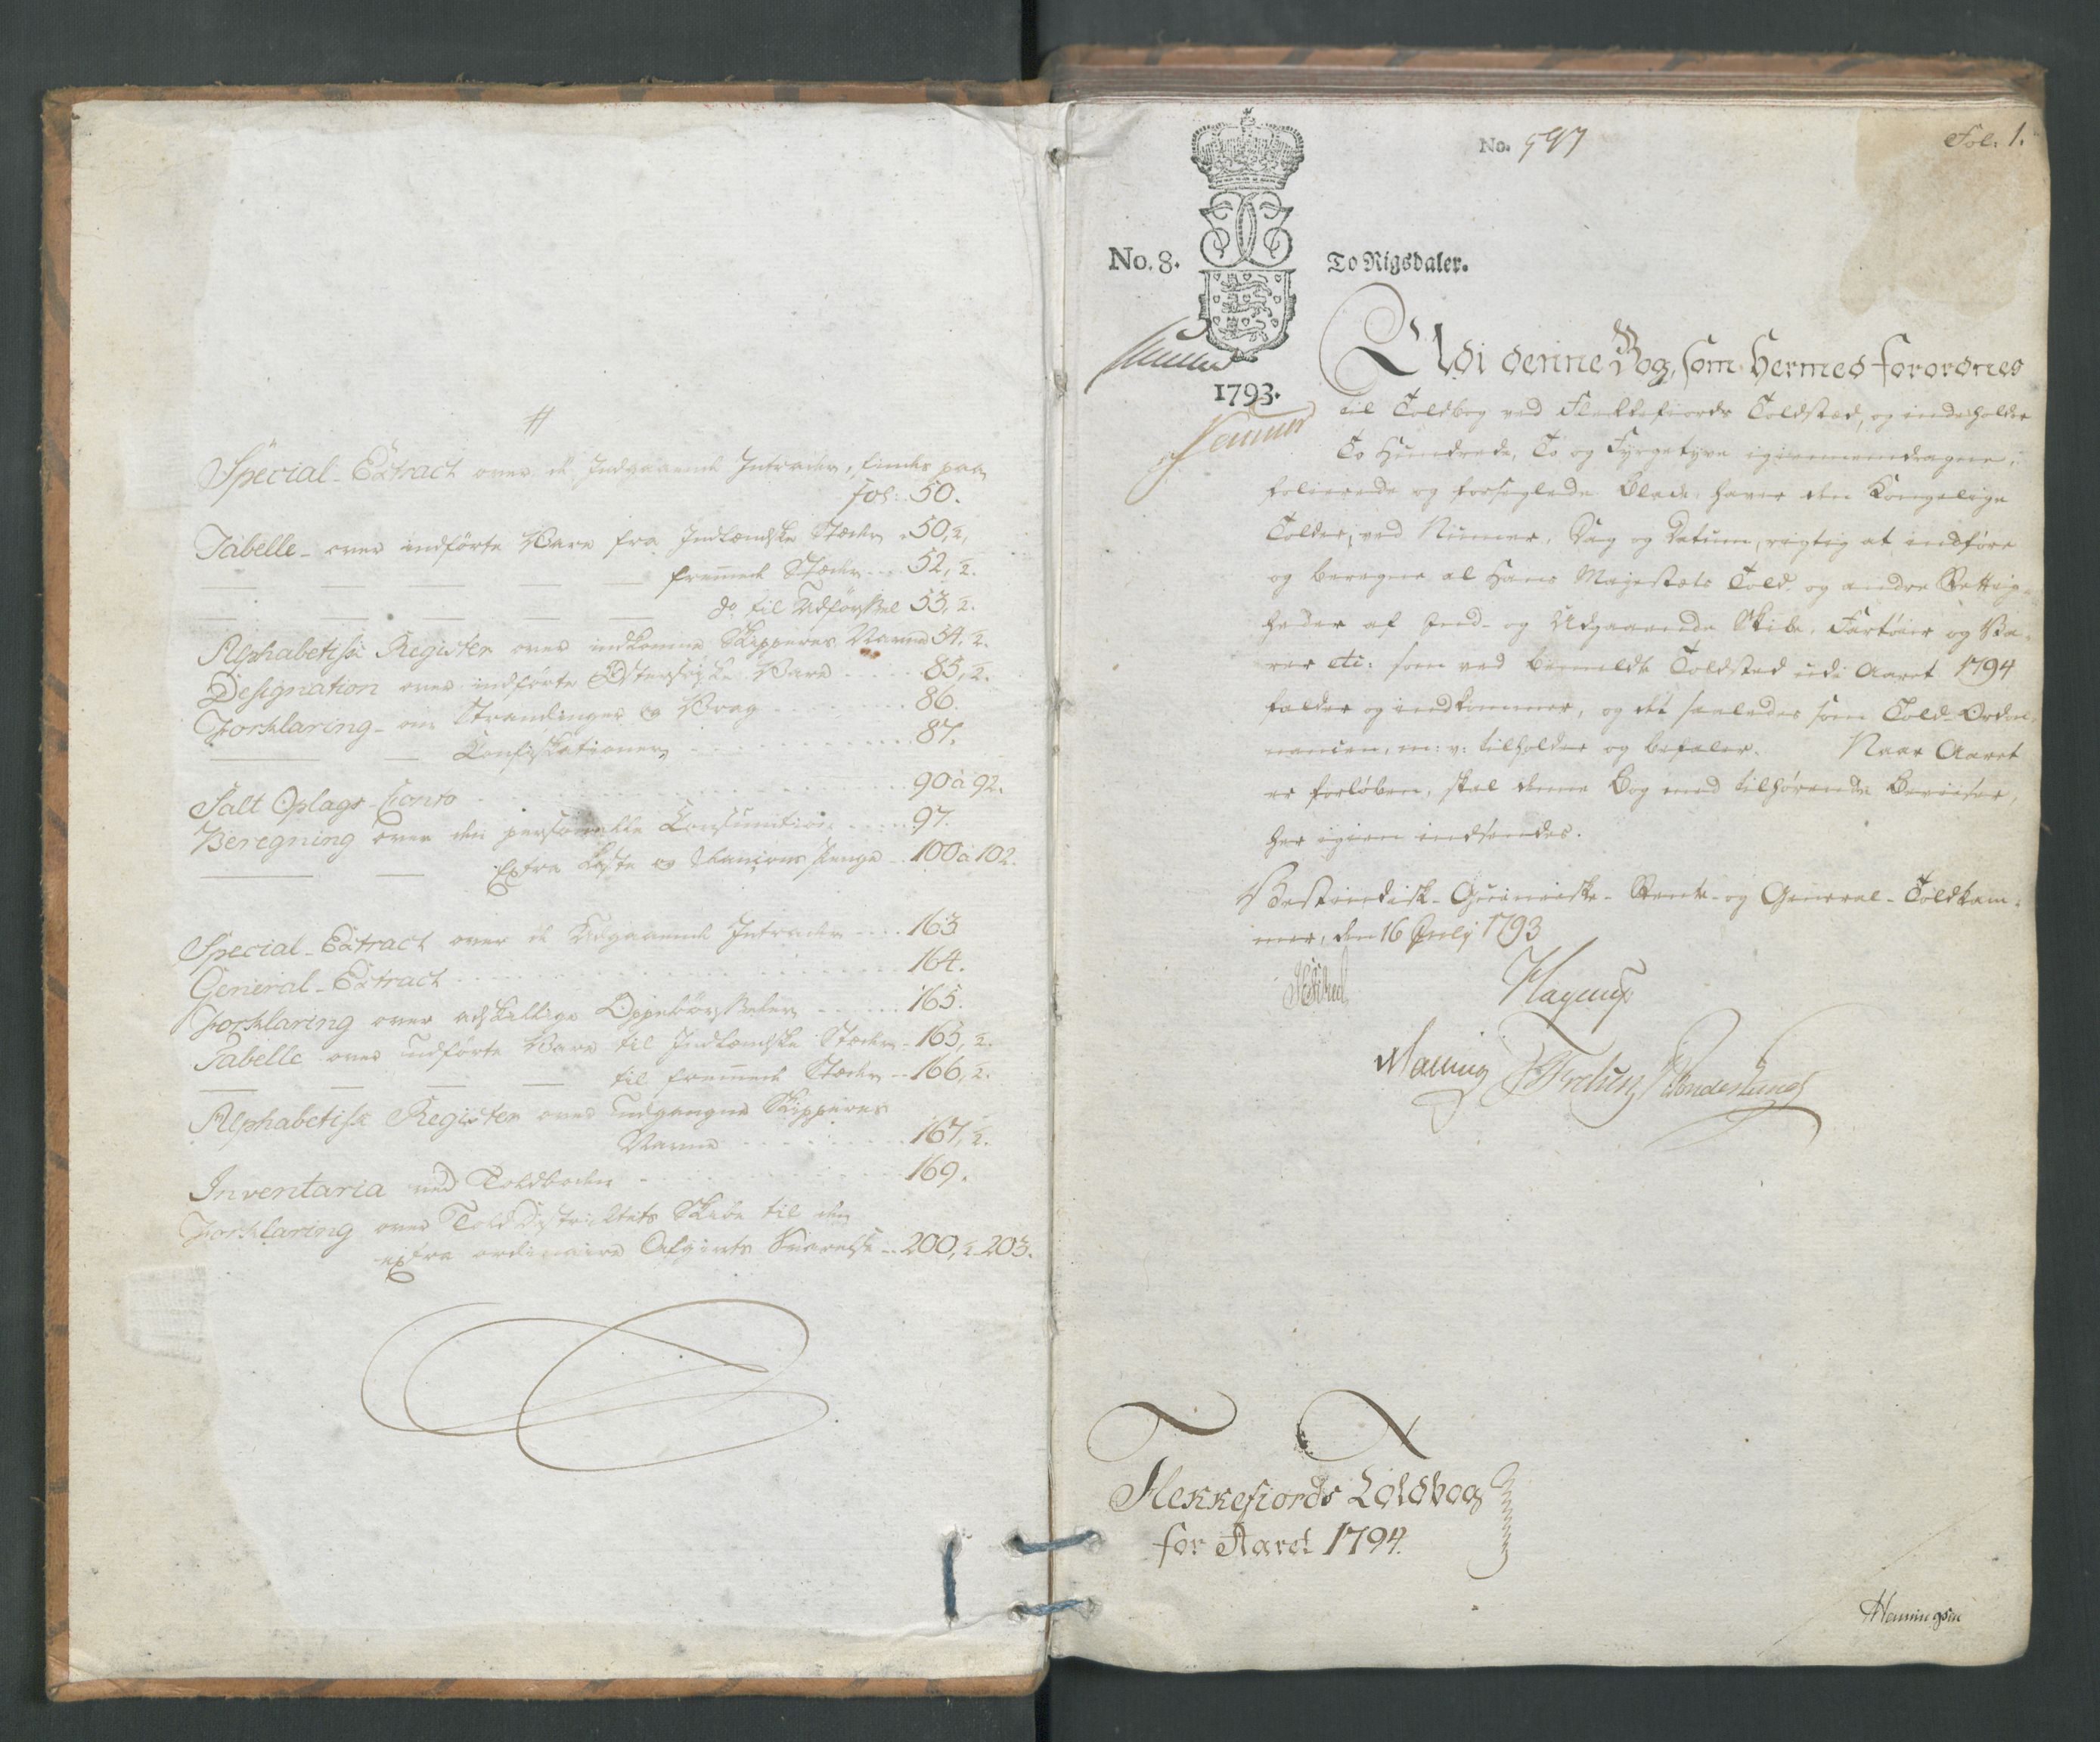 #
Special-Extract over de Indgaaende Intrader, findes paa
Fol: 50.
Tabelle - over indførte Vare fra Indlændske Stæder 50,½,
fremmede Stæder 52,½.
do til Udførsel 53,½.
Alphabetisk Register over indkomne Skipperes Navne 54,½.
Designation over indførte Østersøiske Vare 85,½.
Forklaring - om Strandinger og Vrag 86.
Confiskationer 87.
Salt Oplags-Conto 90 à 92.
Beregning over den personelle Consumtion 97.
Extra Læste og Penge 100 à 102.
Special-Extract over de Udgaaende Intrader 163
General-Extract 164.
Forklaring over adskillige Oppebørseler 165.
Tabelle over udførte Vare til Indlændske Stæder 165,½.
til fremmede Stæder 166,½.
Alphabetisk Register over udgangne Skipperes
Navne 167,½.
Inventaria ved Toldboden 169.
Forklaring over Told Districtets Skibe til den
extra ordinaire Afgivts Svarelse 200,½ 203.
No. 597
Fol. 1.
No. 8.
To Rigsdaler.
1793.
Udi denne Bog, som hermed forordnes
til Toldbog ved Flekkefiords Toldsted, og indeholder
To Hundrede, To og Fyrgetyve igiennemdragne,
folierede og forseglede Blade, haver den Kongelige
Tolder, ved Numer, Dag og Datum, rigtig at indføre
og beregne al Hans Majestæts Told og andre Rettig-
heder af Ind- og Udgaaende Skibe, Fartøier og Va-
rer etc: som ved bemeldte Toldsted udi Aaret 1794
falder og indkommer, og det saaledes som Told-Ordon-
nancen, m: v: tilholder og befaler. Naar Aaret
er forløben, skal denne Bog med tilhørende Beviiser,
her igien indsendes.
Vestindisk-Guineiske-Rente- og General-Toldkam-
mer, den 16 July 1793
Hagerup
Malling
Flekkefiords Toldbog
for Aaret 1794.
Henningsen